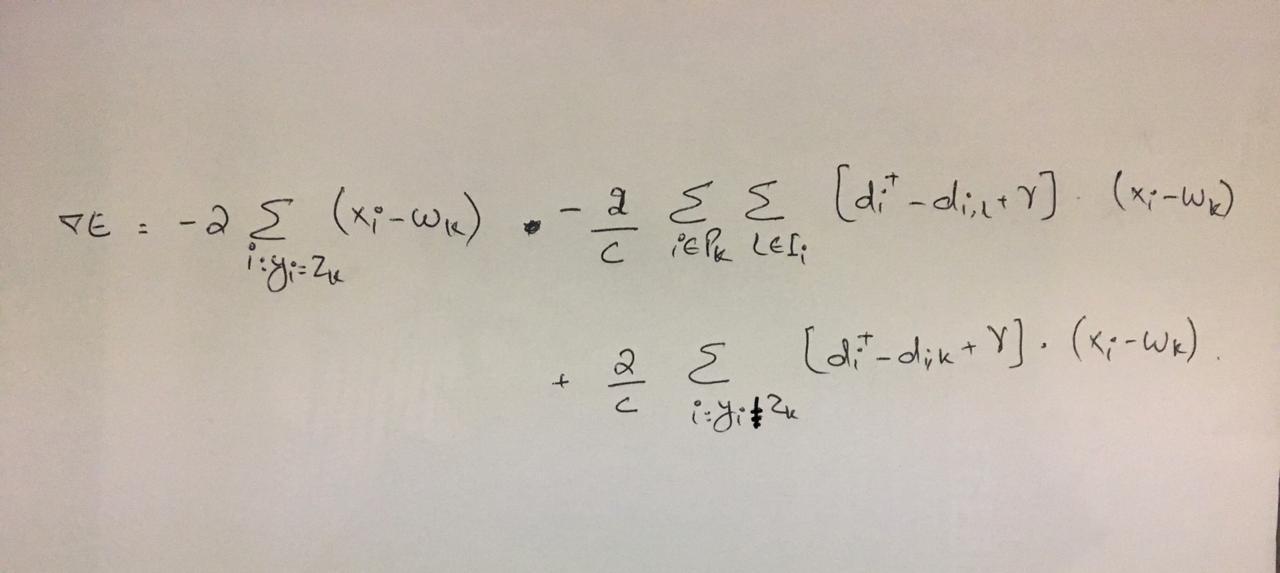 ∇E = -2 Σ_{i:y_i=z_k} (x_i - w_k) - 2/c Σ_{i∈P_k} Σ_{l∈I_i} [d_i^+ - d_{i,l} + γ] · (x_i - w_k)
+ 2/c Σ_{i:y_i≠z_k} [d_i^+ - d_{i,k} + γ] · (x_i - w_k).